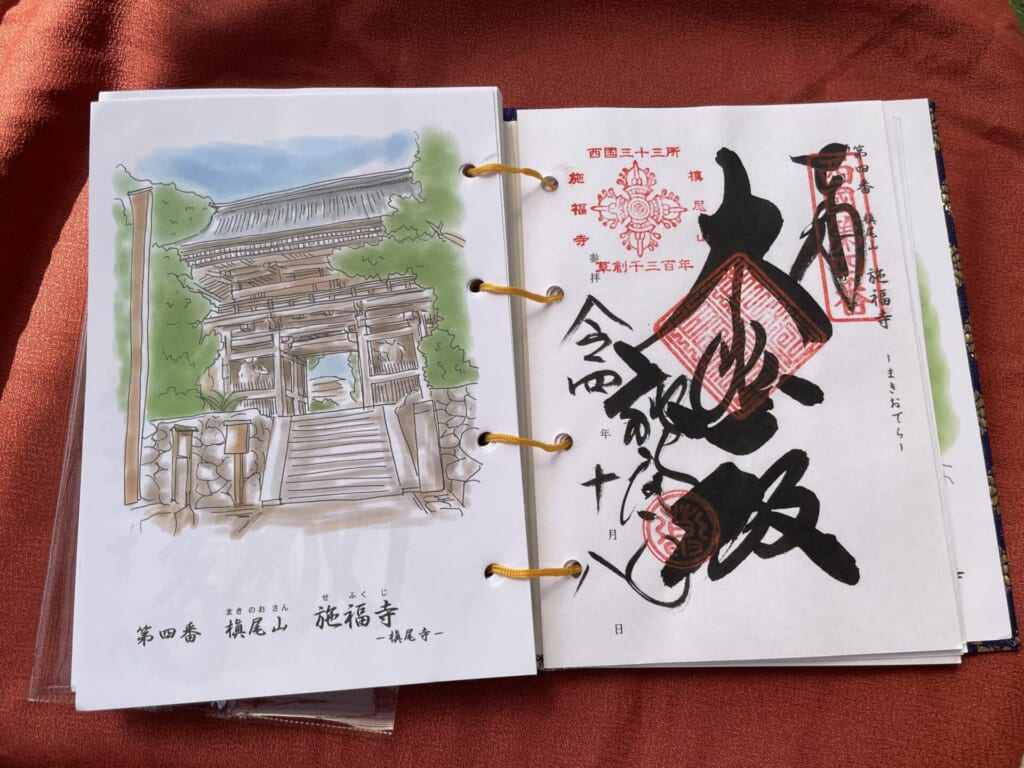 まきのおさん せふくじ
第四番 槇尾山 施福寺
ー槇尾寺ー
第四番 槇尾山 施福寺
ーまきおでらー
西国三十三所
槇尾山
施福寺
草創千三百年
参拝
令四年十月八日